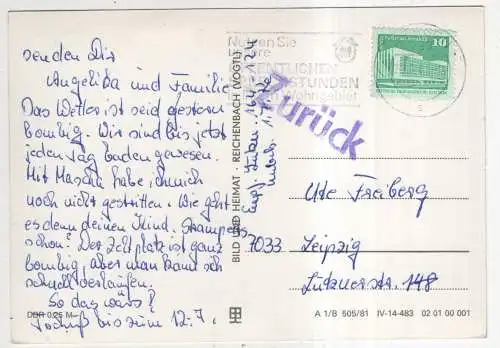 senden Dir
Angelika und Familie
Das Wetter ist seid gestern
Bombig. Wir sind bis jetzt
jeden Tag baden gewesen.
Mit Mascha habe ich mich
noch nicht gestritten. Wie geht
es denn deinen Kind. Strampelts
schon? Der Zeltplatz ist ganz
bombig, aber man kann sich
schnell verlaufen.
So das wars!
Tschüß bis zum 12.7.
DDR 0,25 M
BILD UND HEIMAT · REICHENBACH (VOGTL)
Nutzen Sie
Zurück
10
Ute Freiberg
7033 Leipzig
Lütznerstr. 148
A 1/B 505/81 IV-14-483 02 01 00 001